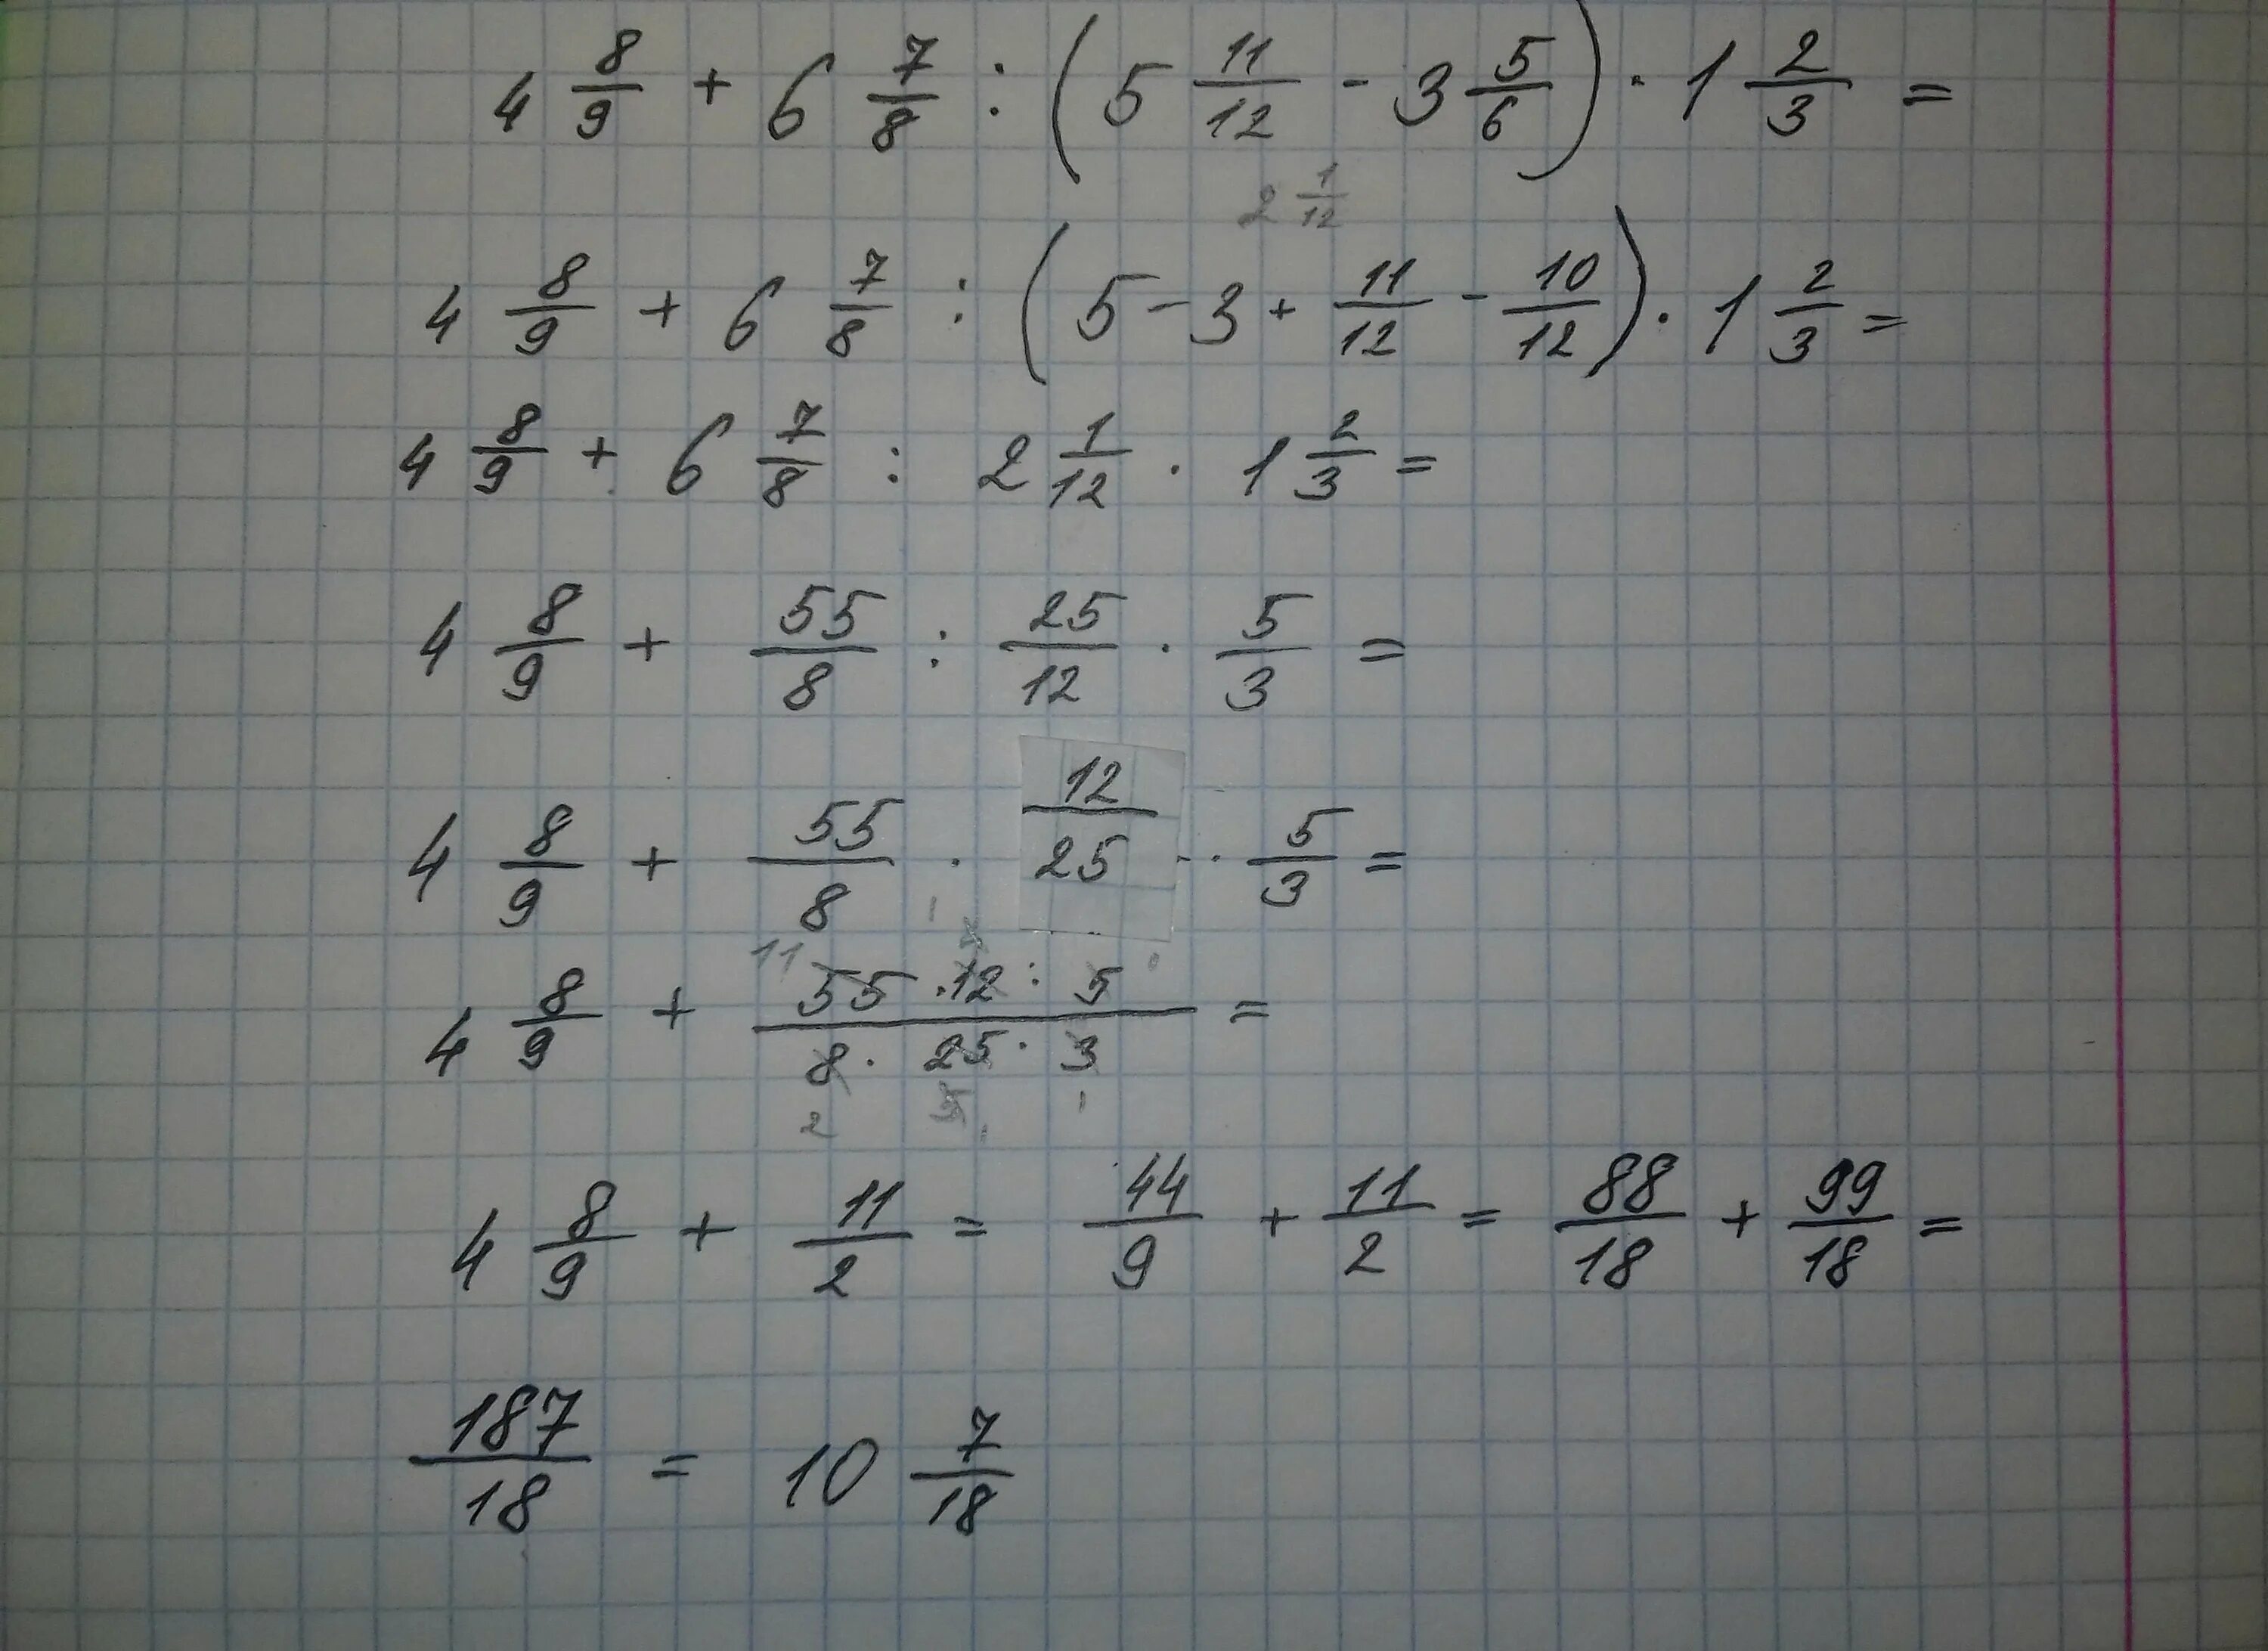 4 8/9 + 6 7/8 : (5 11/12 - 3 5/6) · 1 2/3 =
2 1/12
4 8/9 + 6 7/8 : (5 - 3 + 11/12 - 10/12) · 1 2/3 =
4 8/9 + 6 7/8 : 2 1/12 · 1 2/3 =
4 8/9 + 55/8 : 25/12 · 5/3 =
4 8/9 + 55/8 · 12/25 · 5/3 =
4 8/9 + (55 · 12 : 5)/(8 · 25 · 3) =
4 8/9 + 11/2 = 44/9 + 11/2 = 88/18 + 99/18 =
187/18 = 10 7/18